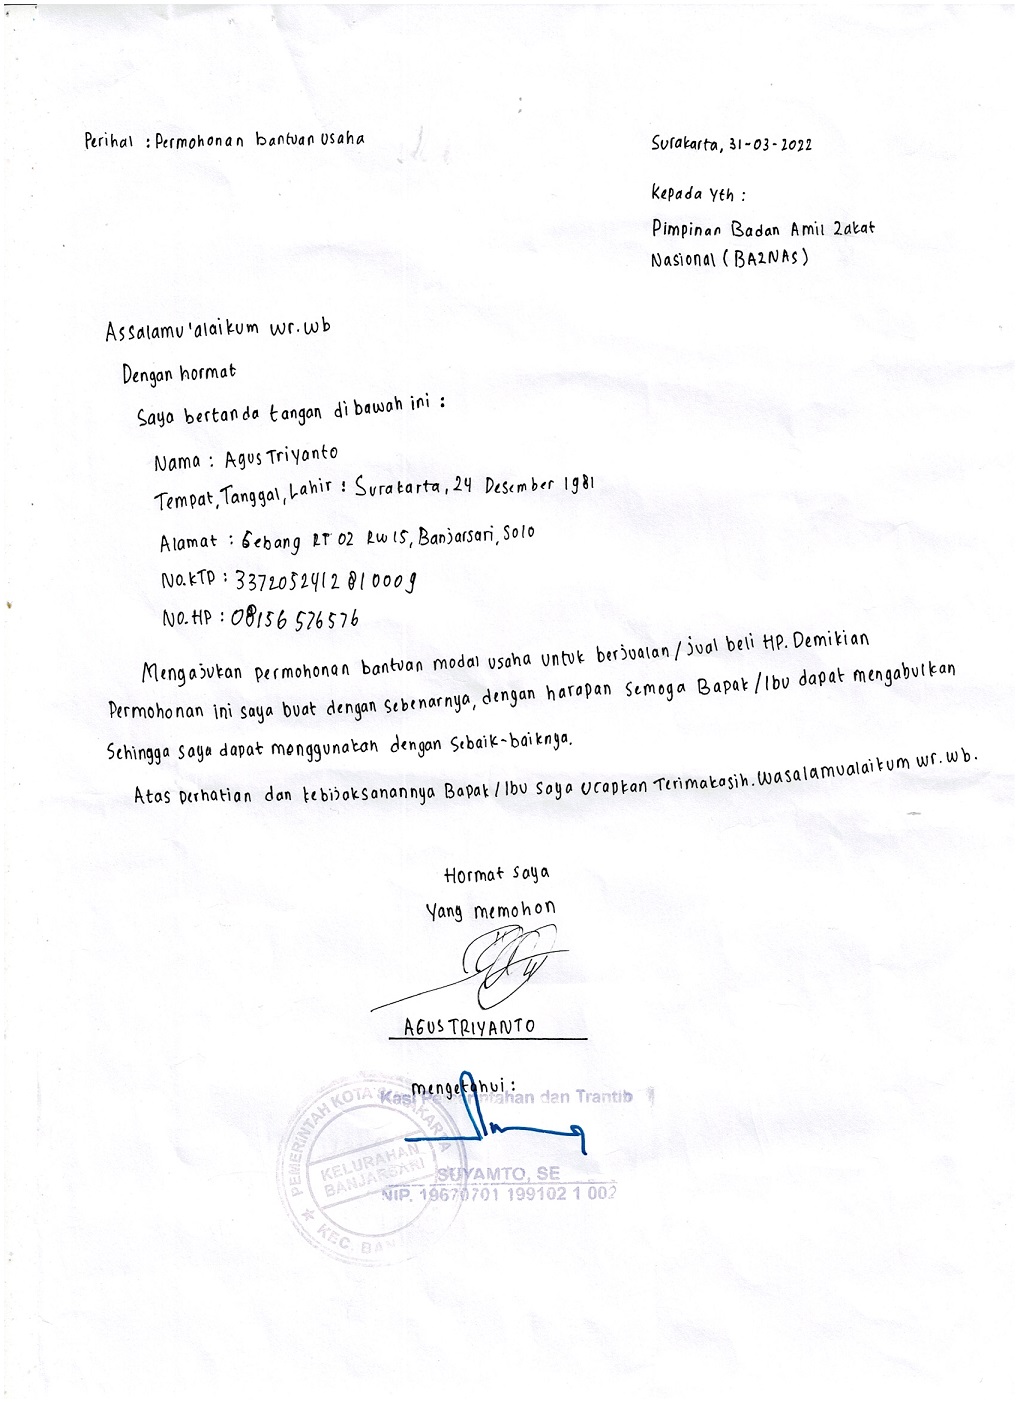 Perihal : Permohonan bantuan usaha
Surakarta, 31-03-2022
Kepada Yth :
Pimpinan Badan Amil Zakat
Nasional (BAZNAS)
Assalamu'alaikum wr.wb
Dengan hormat
Saya bertanda tangan dibawah ini :
Nama : Agus Triyanto
Tempat, Tanggal, Lahir : Surakarta, 24 Desember 1981
Alamat : Gebang RT 02 RW 15, Banjarsari, Solo
No.KTP : 3372052412810009
No.HP : 08156 576576
Mengajukan permohonan bantuan modal usaha untuk berjualan / jual beli HP. Demikian
Permohonan ini saya buat dengan sebenarnya, dengan harapan semoga Bapak / Ibu dapat mengabulkan
Sehingga saya dapat menggunakan dengan sebaik-baiknya.
Atas perhatian dan kebijaksanannya Bapak / Ibu saya ucapkan Terimakasih. Wasalamualaikum wr.wb.
Hormat saya
Yang memohon
AGUS TRIYANTO
mengetahui :
Kasi Pemerintahan dan Trantib
PEMERINTAH KOTA SURAKARTA
KELURAHAN
BANJARSARI
KEC.
SUYAMTO, SE
NIP. 19670701 199102 1 002